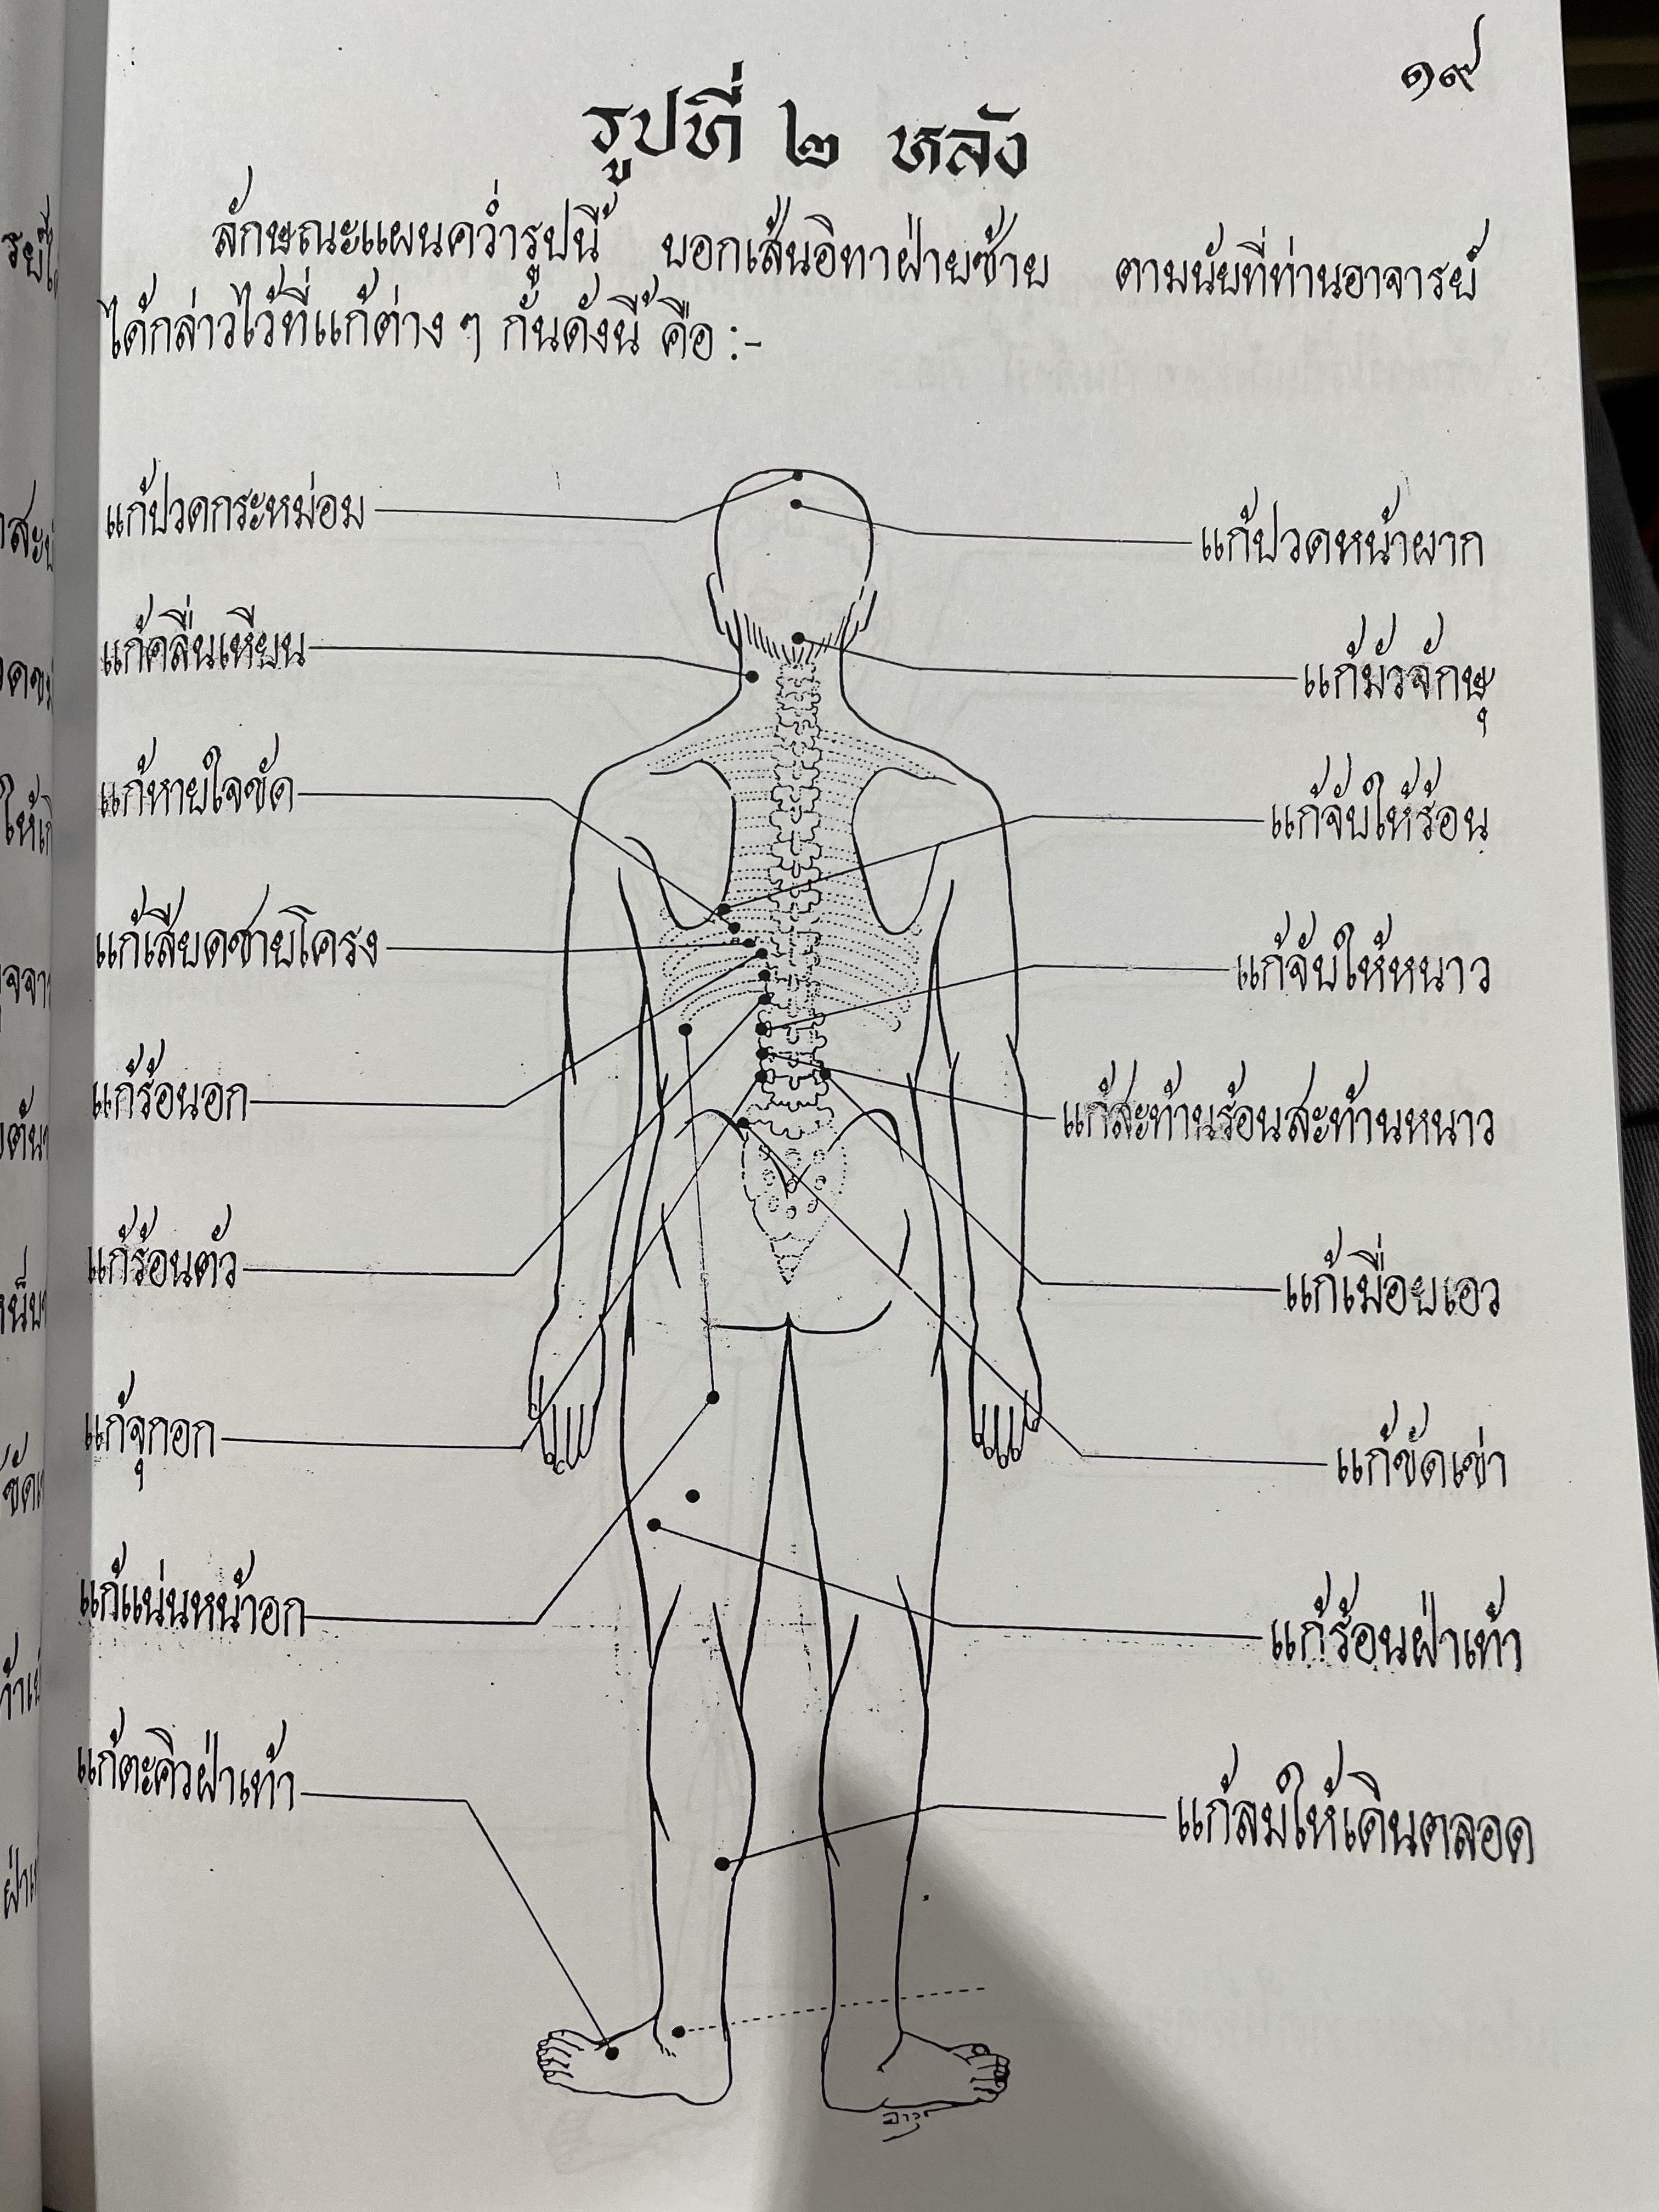 ๑๙
รูปที่ ๒ หลัง
ลักษณะแผนคว่ำรูปนี้ บอกเส้นอิทาฝ่ายซ้าย ตามนัยที่ท่านอาจารย์
ได้กล่าวไว้ที่แก้ต่าง ๆ กันดังนี้ คือ :-
แก้ปวดกระหม่อม
แก้ปวดหน้าผาก
แก้คลื่นเหียน
แก้มัวจักษุ
แก้หายใจขัด
แก้จับให้ร้อน
แก้เสียดชายโครง
แก้จับให้หนาว
แก้ร้อนอก
แก้สะท้านร้อนสะท้านหนาว
แก้ร้อนตัว
แก้เมื่อยเอว
แก้จุกอก
แก้ขัดเข่า
แก้แน่นหน้าอก
แก้ร้อนฝ่าเท้า
แก้ตะคิวฝ่าเท้า
แก้ลมให้เดินตลอด